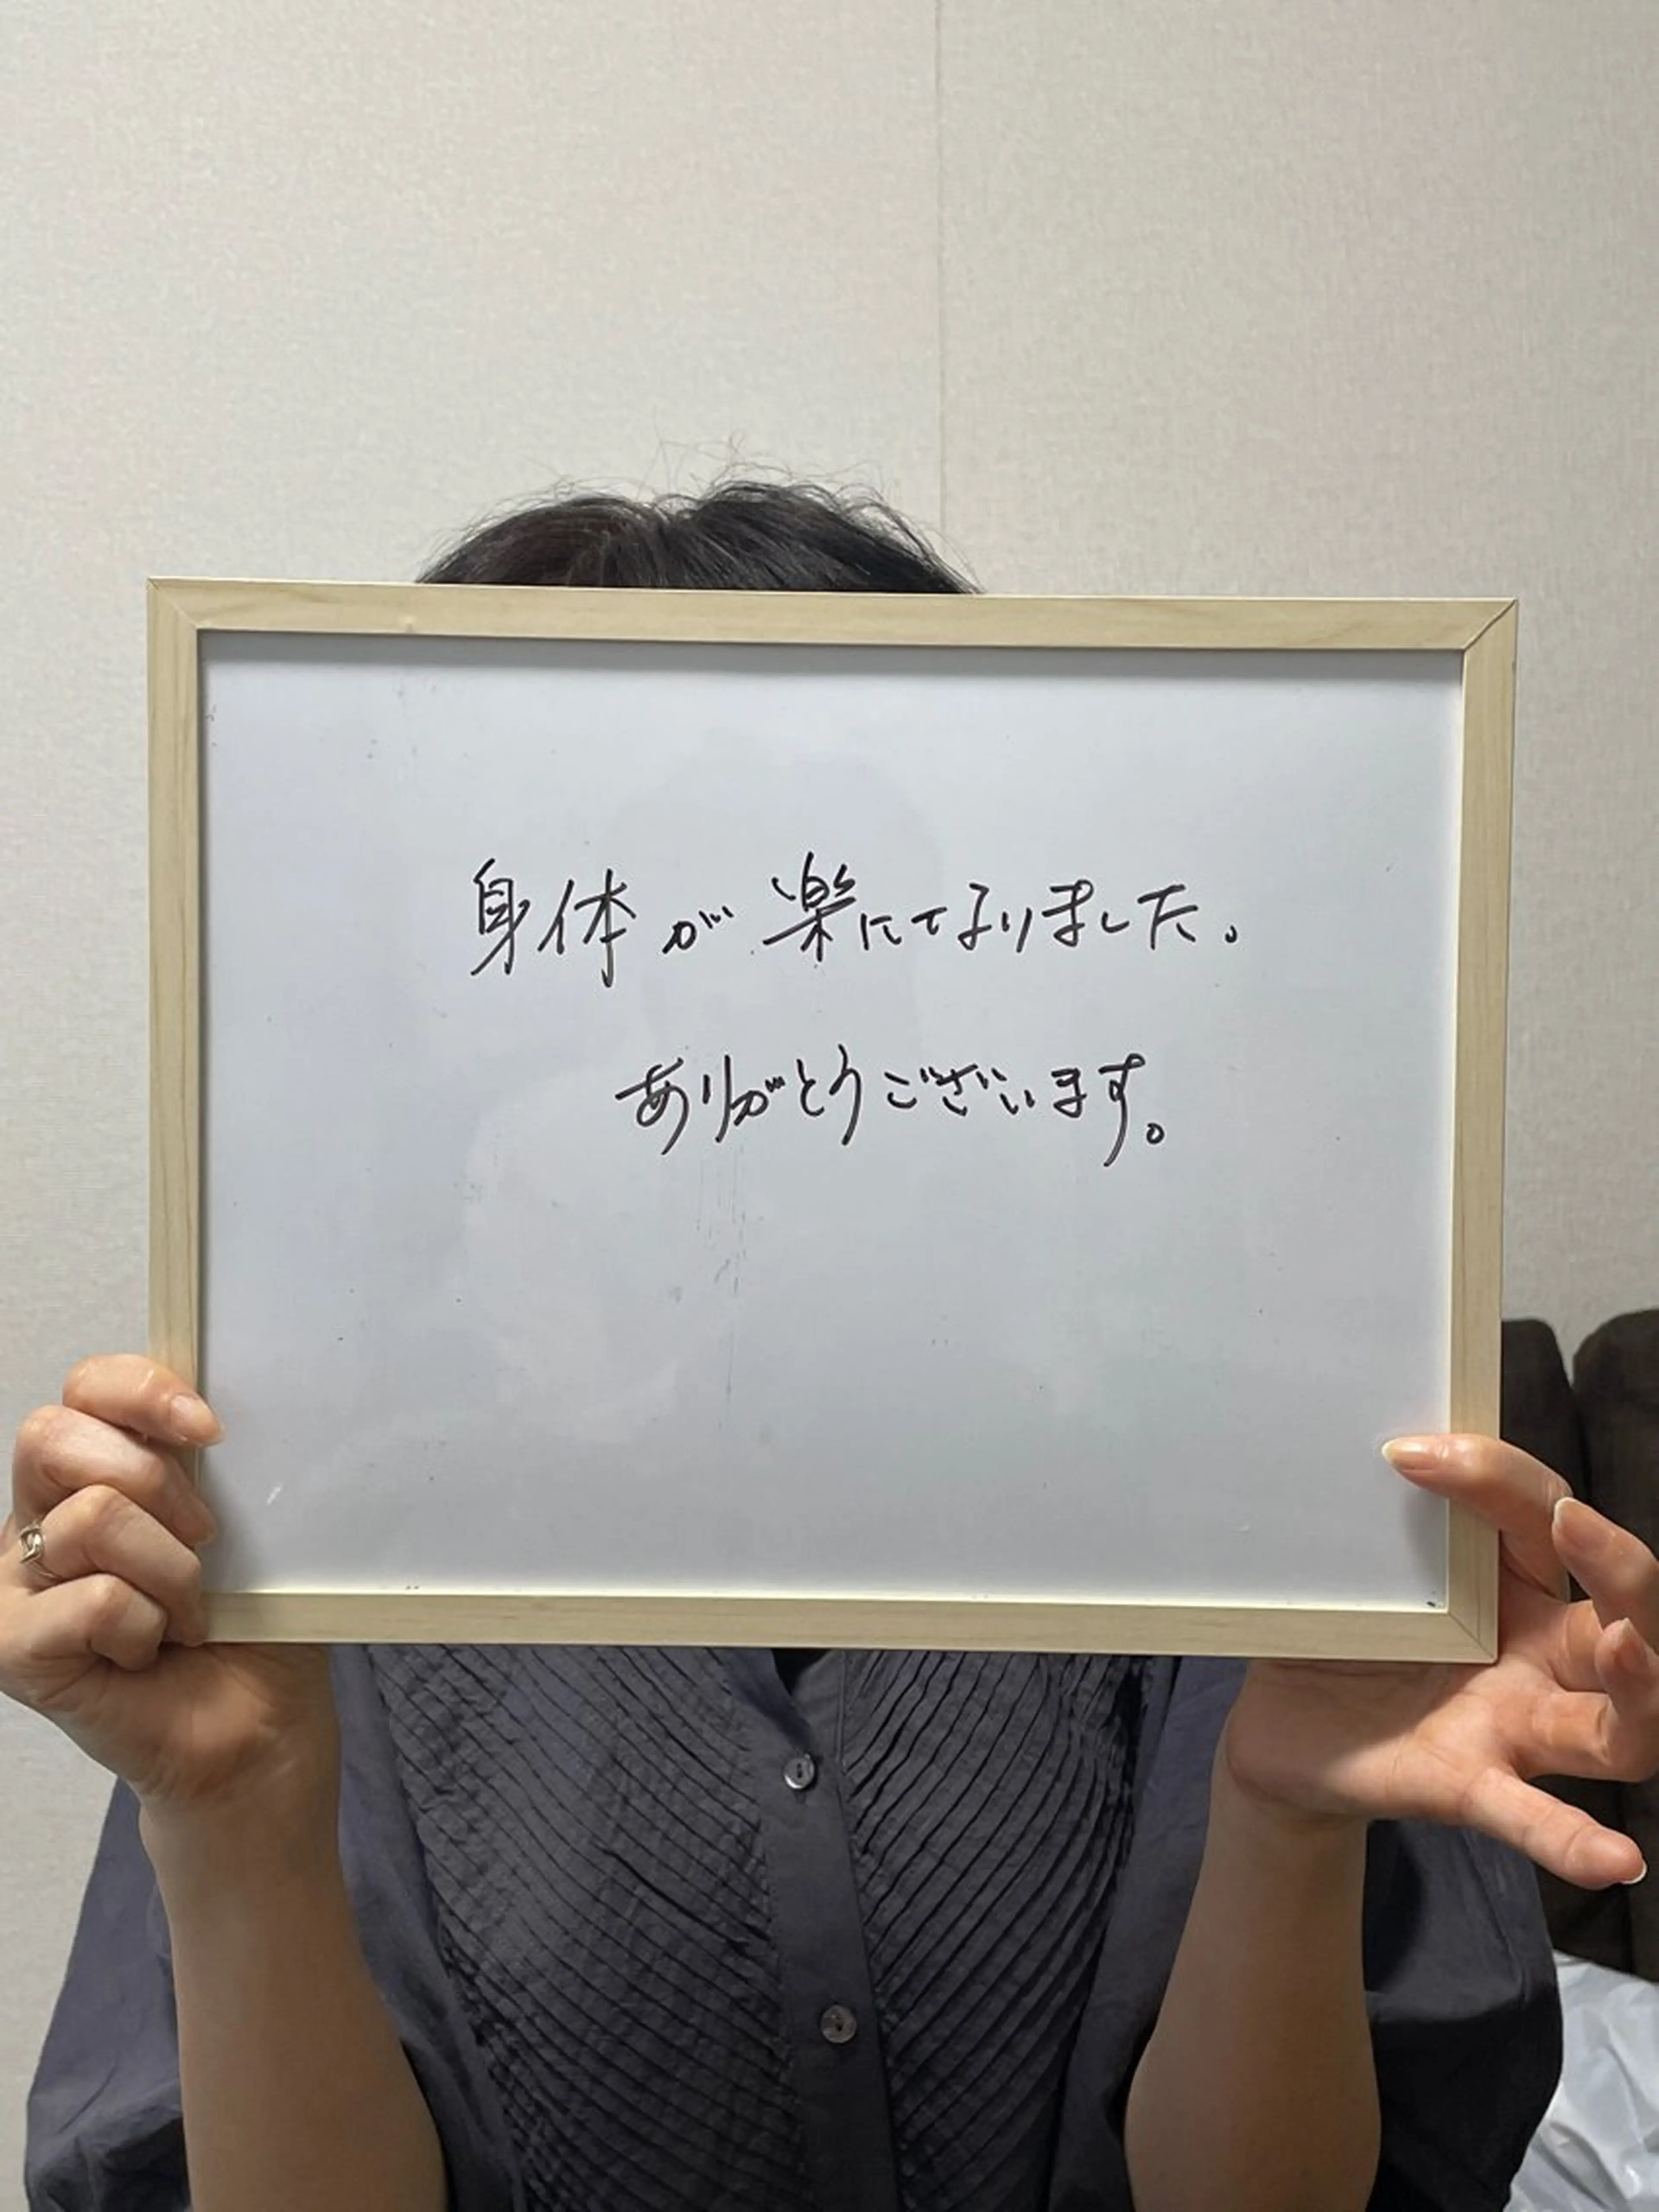 身体が楽になりました。
ありがとうございます。